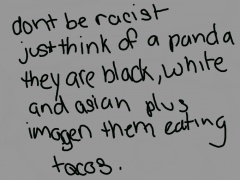 dont be racist
just think of a panda
they are black, white
and asian plus
imagen them eating
tacos.